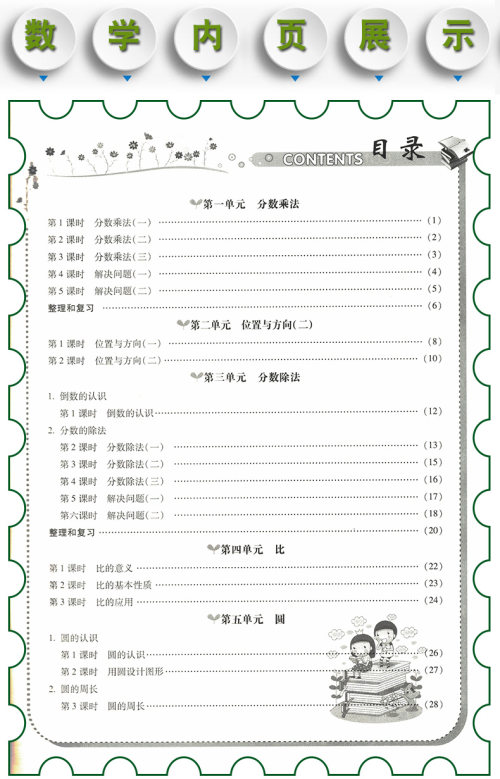 数 学 内 页 展 示
CONTENTS 目录
第一单元 分数乘法
第1课时 分数乘法(一) (1)
第2课时 分数乘法(二) (2)
第3课时 分数乘法(三) (3)
第4课时 解决问题(一) (4)
第5课时 解决问题(二) (5)
整理和复习 (6)
第二单元 位置与方向(二)
第1课时 位置与方向(一) (8)
第2课时 位置与方向(二) (10)
第三单元 分数除法
1. 倒数的认识
第1课时 倒数的认识 (12)
2. 分数的除法
第2课时 分数除法(一) (13)
第3课时 分数除法(二) (15)
第4课时 分数除法(三) (16)
第5课时 解决问题(一) (17)
第六课时 解决问题(二) (18)
整理和复习 (20)
第四单元 比
第1课时 比的意义 (22)
第2课时 比的基本性质 (23)
第3课时 比的应用 (24)
第五单元 圆
1. 圆的认识
第1课时 圆的认识 (26)
第2课时 用圆设计图形 (27)
2. 圆的周长
第3课时 圆的周长 (28)